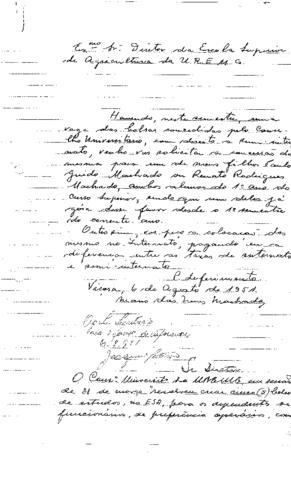 Exmo Sr. Diretor da Escola Superior
de Agricultura da U.R.E.M.G.
Havendo, neste semestre, uma
vaga das bolsas concedidas pelo Conse-
lho Universitário, com direito a semi-inter
nato, venho solicitar a concessão da
mesma para um de meus filhos Paulo
Guido Machado ou Renato Rodrigues
Machado, ambos alunos do 1º ano do
Curso Superior, sendo que um deles já
goza desse favor desde o 1º semestre
do corrente ano.
Outrossim, a colocação dos
mesmo no Internato, pagando eu a
diferença entre as taxas de internato
e semi-internato.
P. deferimento.
Viçosa, 6 de Agosto de 1951.
Machado
Sr. Diretor
O Cons. Universitário da UREMG, em sessão
de 31 de março resolveu criar cinco (5) bolsas
de estudos, na ESA, para os dependentes de
funcionários, de preferência operários, com